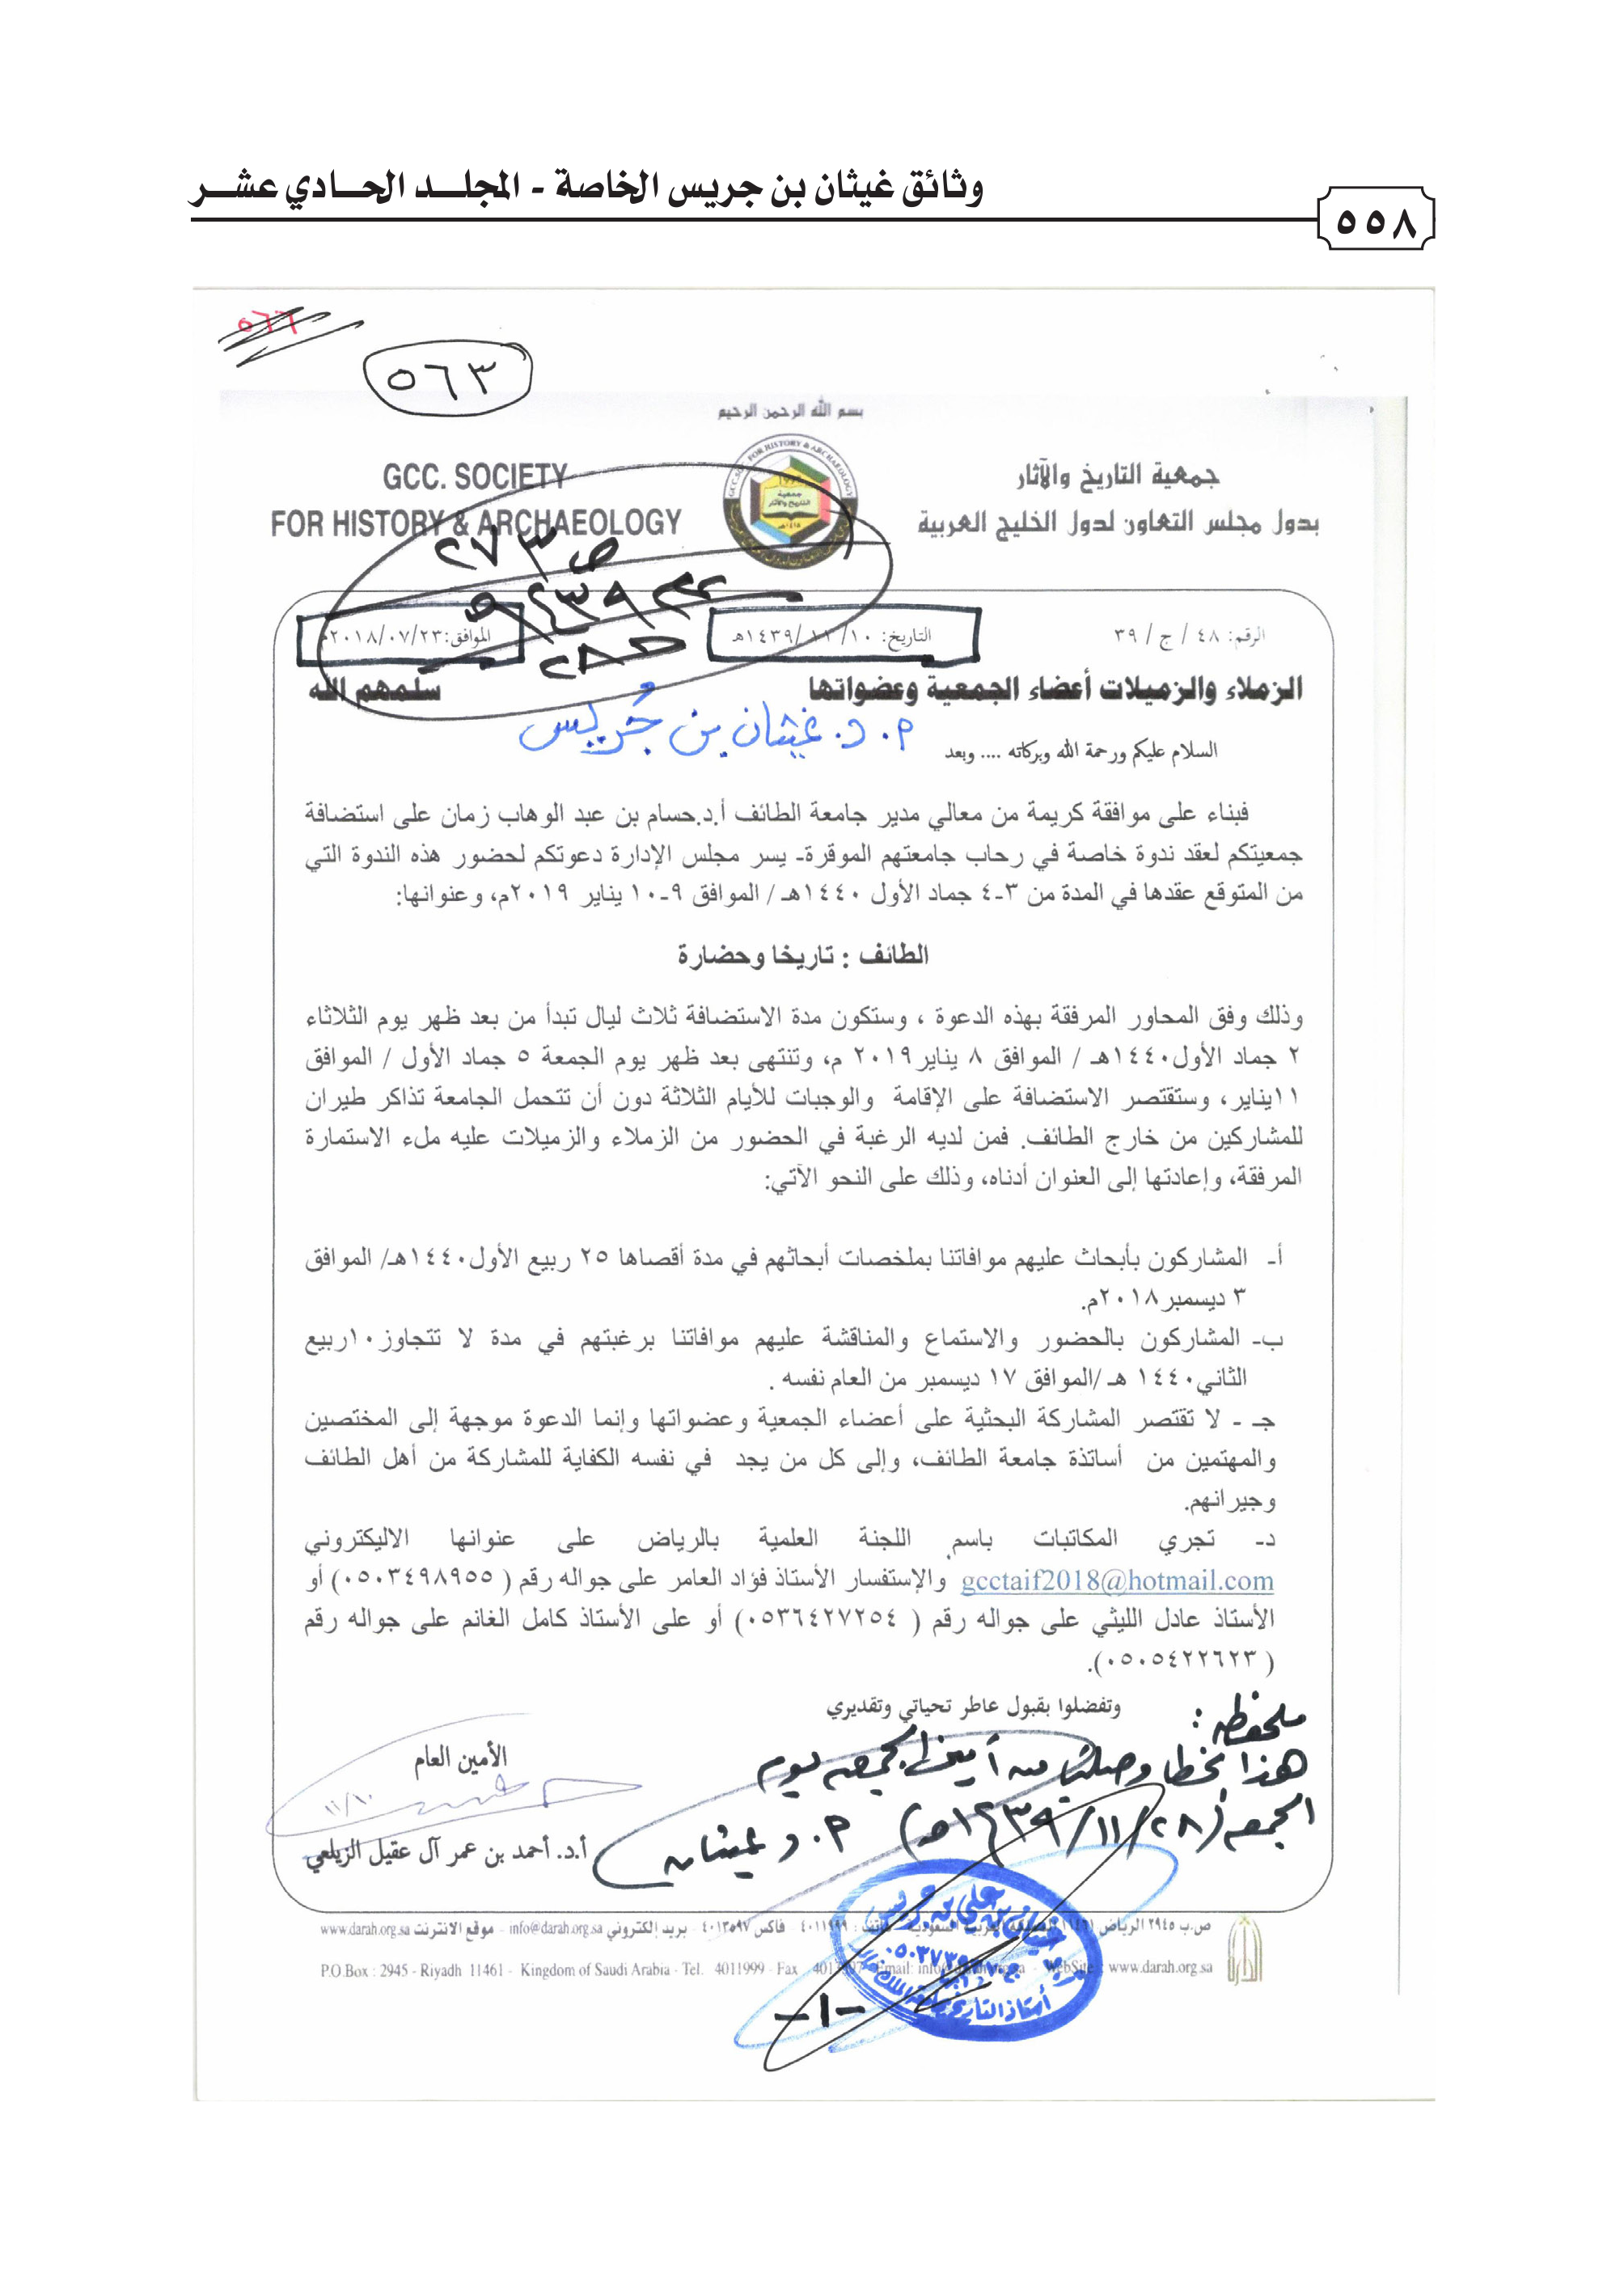 وثائق غيثان بن جريس الخاصة - المجلد الحادي عشر
٥٥٨
٥٦٦
٥٦٣
بسم الله الرحمن الرحيم
جمعية التاريخ والآثار
بدول مجلس التعاون لدول الخليج العربية
GCC. SOCIETY
FOR HISTORY & ARCHAEOLOGY
ص ٢٧٣
الرقم: ٤٨ / ج / ٣٩
التاريخ: ١٠/ ١١ /١٤٣٩هـ
الموافق:٢٠١٨/٠٧/٢٣م
الزملاء والزميلات أعضاء الجمعية وعضواتها سلمهم الله
م. د. غيثان بن جُريس
السلام عليكم ورحمة الله وبركاته .... وبعد
فبناء على موافقة كريمة من معالي مدير جامعة الطائف أ.د.حسام بن عبد الوهاب زمان على استضافة
جمعيتكم لعقد ندوة خاصة في رحاب جامعتهم الموقرة- يسر مجلس الإدارة دعوتكم لحضور هذه الندوة التي
من المتوقع عقدها في المدة من ٣-٤ جماد الأول ١٤٤٠هـ / الموافق ٩-١٠ يناير ٢٠١٩م، وعنوانها:
الطائف : تاريخا وحضارة
وذلك وفق المحاور المرفقة بهذه الدعوة ، وستكون مدة الاستضافة ثلاث ليال تبدأ من بعد ظهر يوم الثلاثاء
٢ جماد الأول١٤٤٠هـ / الموافق ٨ يناير٢٠١٩ م، وتنتهى بعد ظهر يوم الجمعة ٥ جماد الأول / الموافق
١١يناير، وستقتصر الاستضافة على الإقامة والوجبات للأيام الثلاثة دون أن تتحمل الجامعة تذاكر طيران
للمشاركين من خارج الطائف. فمن لديه الرغبة في الحضور من الزملاء والزميلات عليه ملء الاستمارة
المرفقة، وإعادتها إلى العنوان أدناه، وذلك على النحو الآتي:
أ- المشاركون بأبحاث عليهم موافاتنا بملخصات أبحاثهم في مدة أقصاها ٢٥ ربيع الأول١٤٤٠هـ/ الموافق
٣ ديسمبر٢٠١٨م.
ب- المشاركون بالحضور والاستماع والمناقشة عليهم موافاتنا برغبتهم في مدة لا تتجاوز١٠ربيع
الثاني١٤٤٠ هـ /الموافق ١٧ ديسمبر من العام نفسه .
جـ - لا تقتصر المشاركة البحثية على أعضاء الجمعية وعضواتها وإنما الدعوة موجهة إلى المختصين
والمهتمين من أساتذة جامعة الطائف، وإلى كل من يجد في نفسه الكفاية للمشاركة من أهل الطائف
وجيرانهم.
د- تجري المكاتبات باسم اللجنة العلمية بالرياض على عنوانها الاليكتروني
gcctaif2018@hotmail.com والإستفسار الأستاذ فؤاد العامر على جواله رقم ( ٠٥٠٣٤٩٨٩٥٥) أو
الأستاذ عادل الليثي على جواله رقم ( ٠٥٣٦٤٢٧٢٥٤) أو على الأستاذ كامل الغانم على جواله رقم
( ٠٥٠٥٤٢٢٦٢٣).
وتفضلوا بقبول عاطر تحياتي وتقديري
ملحفظه :
هذا بخطا وصلتنا من أمين الجمعه يوم
الجمعه (٢٨/١١/١٤٣٩هـ) م. د غيثان
الأمين العام
١١/١٠
أ.د. أحمد بن عمر آل عقيل الزيلعي
ص.ب ٢٩٤٥ الرياض ١١٤٦١ المملكة العربية السعودية - هاتف : ٤٠١١٩٩٩ - فاكس ٤٠١٣٥٩٧ - بريد إلكتروني info@darah.org.sa - موقع الانترنت www.darah.org.sa
P.O.Box : 2945 - Riyadh 11461 - Kingdom of Saudi Arabia - Tel. 4011999 - Fax 4013597 Email: info@darah.org.sa - WebSite : www.darah.org.sa
-١-